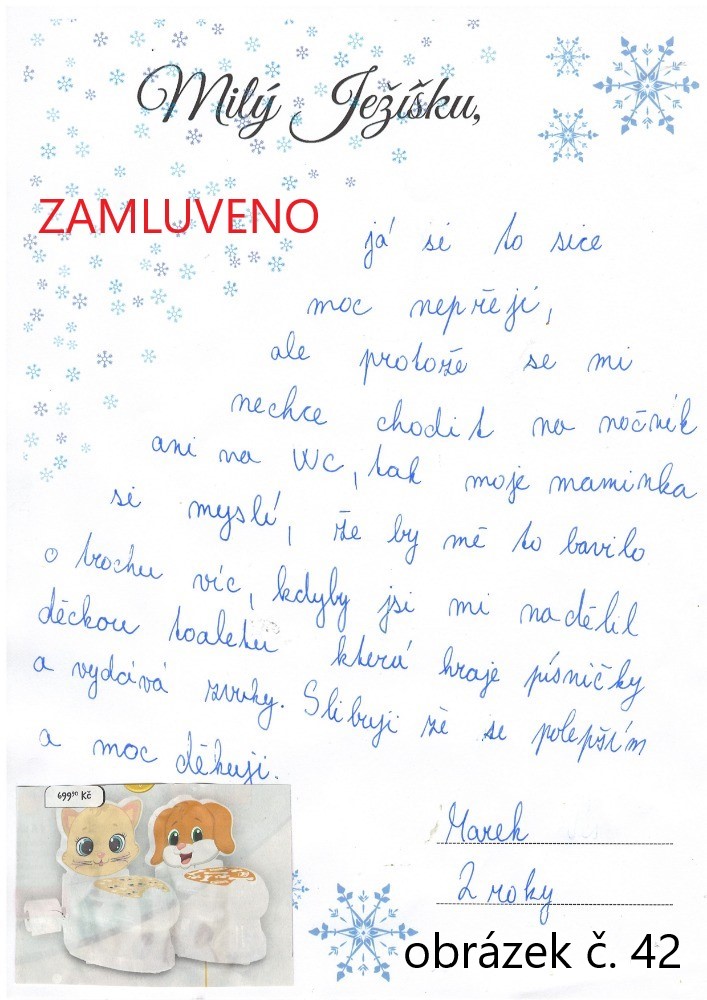 Milý Ježíšku,
ZAMLUVENO
já si to sice
moc nepřeji,
ale protože se mi
nechce chodit na nočník
ani na WC, tak moje maminka
si myslí, že by mě to bavilo
o trochu víc, kdyby jsi mi nadělil
děckou toaletu která hraje písničky
a vydává zvuky. Slibuji že se polepším
a moc děkuji.
699⁹⁰ Kč
Marek
2 roky
obrázek č. 42